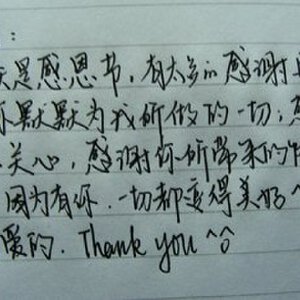 ：
天是感恩节，有太多的感谢
你默默为我所做的一切；
关心，感谢你所带来的
因为有你．一切都变得美好
爱的．Thank you ^o^